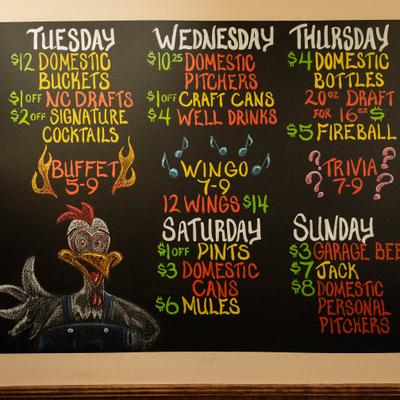 TUESDAY
$12 DOMESTIC
BUCKETS
$1 OFF NC DRAFTS
$2 OFF SIGNATURE
COCKTAILS
BUFFET
5-9
WEDNESDAY
$10.25 DOMESTIC
PITCHERS
$1 OFF CRAFT CANS
$4 WELL DRINKS
WINGO
7-9
12 WINGS $14
THURSDAY
$4 DOMESTIC
BOTTLES
20oz DRAFT
FOR 16oz $
$5 FIREBALL
TRIVIA
7-9
SATURDAY
$1 OFF PINTS
$3 DOMESTIC
CANS
$6 MULES
SUNDAY
$3 GARAGE BEE
$7 JACK
$8 DOMESTIC
PERSONAL
PITCHERS